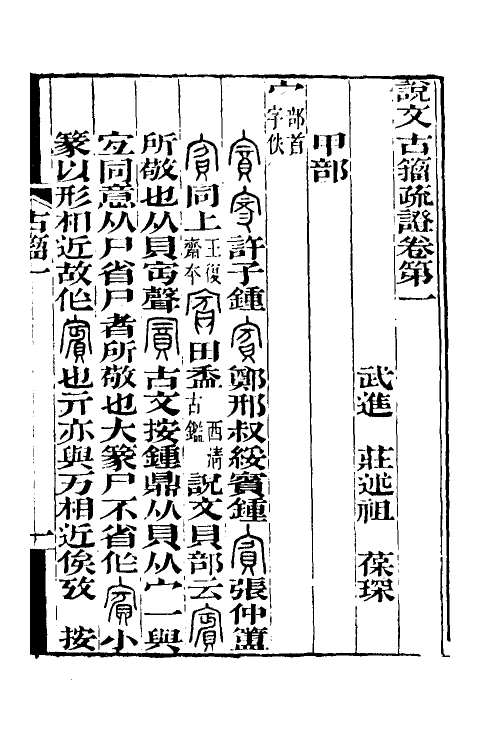 說文古籀疏證卷第一
武進 莊述祖 葆琛
甲部
宀 部首字佚
許子鍾 鄭邢叔綏賓鍾 張仲簠
同上 王復齋本 田盉 西清古鑑 說文貝部云
所敬也从貝宀聲 古文按鍾鼎从貝从宀一與
宀同意从尸省尸者所敬也大篆尸不省作 小
篆以形相近故作 也亓亦與万相近俟攷 按
古籀一 一